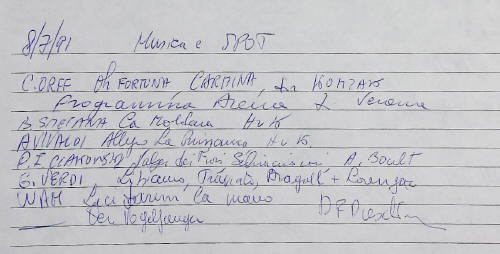 8/7/91 Musica e SPOT
C. ORFF Oh FORTUNA CARMINA,
Programma Arena di Verona
B. SMETANA La Moldava HvK.
A VIVALDI Allegro La Primavera HvK.
P. I. CIAIKOWSKI Valzer dei Fiori Schiaccianoci A. Boult
G. VERDI Libiamo, Traviata, +
WAM Là ci darem la mano
Der Vogelfänger